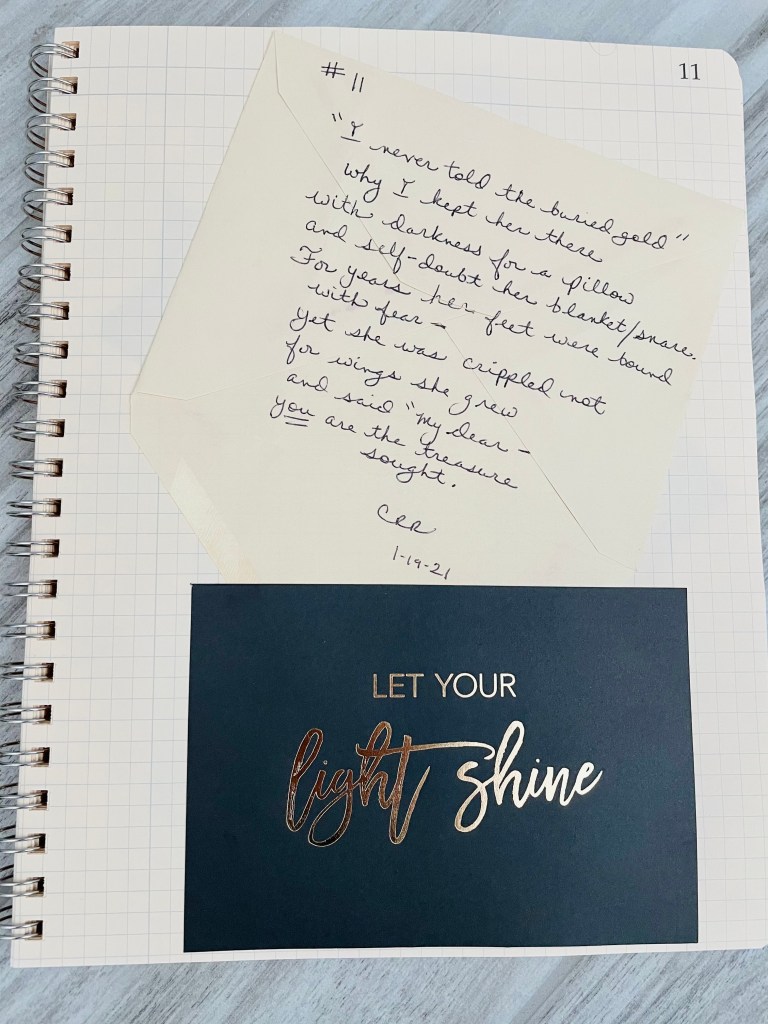 11
#11
"I never told the buried gold"
why I kept her there
with darkness for a pillow
and self-doubt her blanket/snare.
For years her feet were bound
with fear –
yet she was crippled not
for wings she grew
and said "my dear –
you are the treasure
sought.
CRR
1-19-21
LET YOUR
light shine